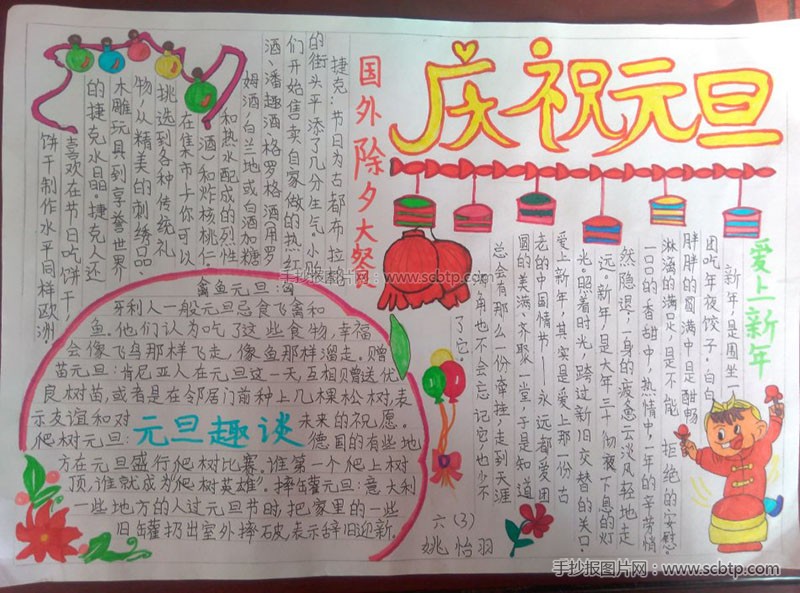 庆祝元旦
国外除夕大餐
捷克:节日为古都布拉格
的街头平添了几分生气,小贩
们开始售卖自家做的热红
酒、潘趣酒、格罗格酒(用罗
姆酒、白兰地或白酒加糖
和热水配成的烈性
酒)和炸核桃仁
在集市上你可以
挑选到各种传统礼
物,从精美的刺绣品
木雕玩具到享誉世界
的捷克水晶.捷克人还
喜欢在节日吃饼干,
饼干制作水平同样欧洲.
爱上新年
新年,是围坐一
团吃年夜饺子.白白
胖胖的圆满中是酣畅
淋漓的满足,是不能拒绝的安慰.
一口口的香甜中,热情中,一年的辛劳悄
然隐退,一身的疲惫云淡风轻地走
远.新年,是大年三十彻夜不息的灯
光.照着时光,跨过新旧交替的关口.
爱上新年,其实是爱上那一份古
老的中国情节——永远都爱团
圆的美满、齐聚一堂,于是知道
总会有那么一份牵挂,走到天涯
海角也不会忘记它也少不
了它.
禽鱼元旦:匈
牙利人一般元旦忌食飞禽和
鱼.他们认为吃了这些食物,幸福
会像飞鸟那样飞走,像鱼那样溜走.赠
苗元旦:肯尼亚人在元旦这一天,互相赠送优
良树苗,或者是在邻居门前种上几棵松树,表
示友谊和对未来的祝愿.
爬树元旦:德国的有些地
元旦趣谈
方在元旦盛行爬树比赛.谁第一个爬上树
顶,谁就成为“爬树英雄”.摔罐元旦:意大利
一些地方的人过元旦节时,把家里的一些
旧罐扔出室外摔破,表示辞旧迎新.
六(3)
姚怡羽
手抄报图片网:www.scbtp.com
手抄报图片网:www.scbtp.com